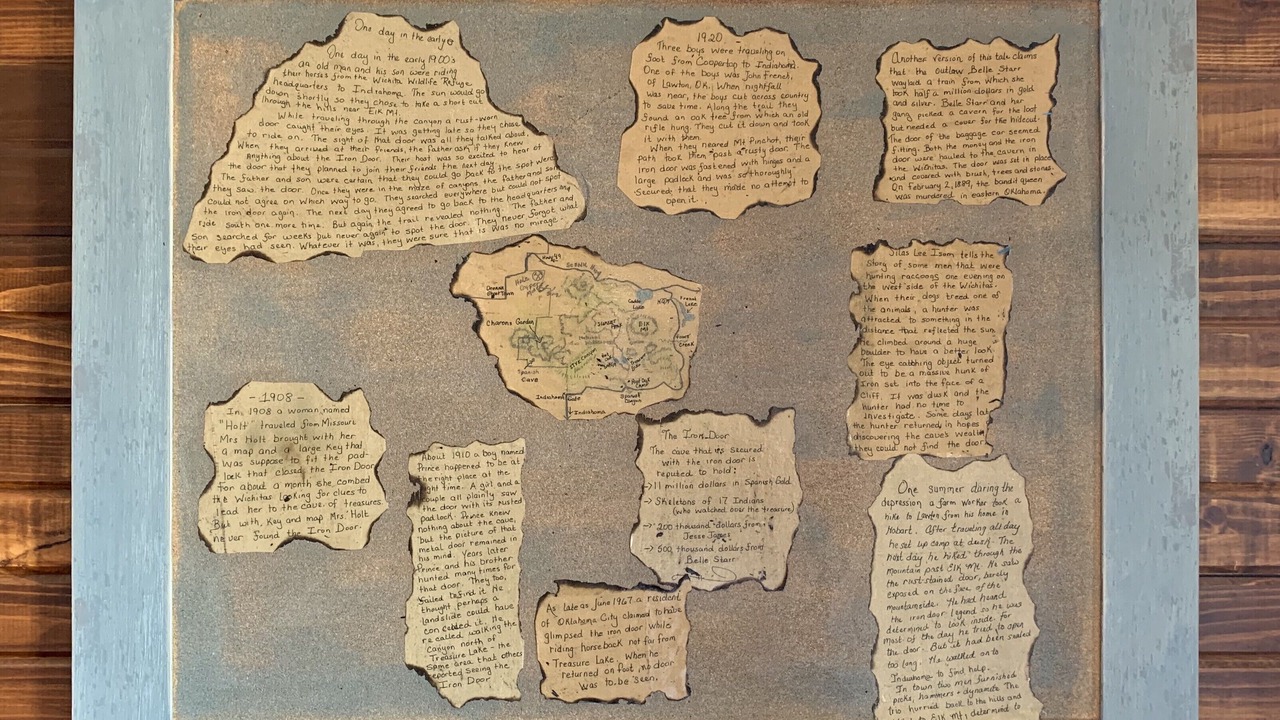 One day in the early
One day in the early 1900's
an old man and his son were riding
their horses from the Wichita Wildlife Refuge
headquarters to Indiahoma. The sun would go
down shortly so they chose to take a short cut
through the hills near Elk Mt.
While traveling through the canyon a rust-worn
door caught their eyes. It was getting late so they chose
to ride on. The sight of that door was all they talked about.
When they arrived at their friends, the father ask if they knew
Anything about the Iron Door. Their host was so excited to hear of
the door that they planned to join their friend the next day.
The father and son were certain that they could go back to the spot were
they saw the door. Once they were in the maze of canyons the father and son
Could not agree on which way to go. They searched everywhere but could not spot
the iron door again. The next day they agreed to go back to the headquarters and
ride south one more time. But again the trail revealed nothing. The father and
Son searched for weeks but never again to spot the door. They never forgot what
their eyes had seen. Whatever it was, they were sure that is was no mirage.
1920
Three boys were traveling on
foot from Coopertop to Indiahoma.
One of the boys was John French,
of Lawton, OK. When nightfall
was near, the boys cut across country
to save time. Along the trail they
found an oak tree from which an old
rifle hung. They cut it down and took
it with them.
When they neared Mt Pinchot, their
path took them pash a rusty door. The
iron door was fastened with hinges and a
large padlock and was so thoroughly
secured, that they made no attempt to
open it.
Another version of this tale claims
that the outlaw Belle Starr
waylaid a train from which she
took half a million dollars in gold
and silver. Belle Starr and her
gang picked a cavern for the loot
but needed a cover for the hideout.
The door of the baggage car seemed
fitting. Both the money and the iron
door were hauled to the cavern in
the Wichitas. The door was set in place
and covered with brush, trees and stones.
On February 2, 1889, the bandit queen
was murdered in eastern Oklahoma.
Hwy 49
Charons Garden
Sunset
Elk
Mt
Spanish
Cave
Indiahoma Gate
Indiahoma
Silas Lee Isom tells the
Story of some men that were
hunting raccoons one evening on
the west side of the Wichitas.
When their dogs treed one of
the animals, a hunter was
attracted to something in the
distance that reflected the sun.
He climbed around a huge
boulder to have a better look.
The eye catching object turned
out to be a massive hunk of
Iron set into the face of a
Cliff. It was dusk and the
hunter had no time to
investigate. Some days lat
the hunter returned in hopes
discovering the cave's wealth
they could not find the door
- 1908 -
In 1908 a woman named
"Holt" traveled from Missouri
Mrs Holt brought with her
a map and a large key that
was suppose to fit the pad-
lock that closed the Iron Door
for about a month she combed
the Wichitas looking for clues to
lead her to the cave of treasures.
But with, key and map Mrs Holt
never found the Iron Door.
About 1910 a boy named
Prince happened to be at
the right place at the
right time. A girl and a
couple all plainly saw
the door with its rusted
padlock. Prince knew
nothing about the cave,
but the picture of that
metal door remained in
his mind. Years later
Prince and his brother
hunted many times for
that door. They too,
failed to find it. He
thought perhaps a
landslide could have
concealed it. He
recalled walking the
Canyon north of
Treasure Lake - the
Same area that others
reported seeing the
Iron Door
The Iron Door
The cave that is secured
with the iron door is
reputed to hold:
→ 11 million dollars in Spanish Gold
→ Skeletons of 17 Indians
(who watched over the treasure)
→ 200 thousand dollars from
Jesse James
→ 500 thousand dollars from
Belle Starr
As late as June 1967 a resident
of Oklahoma City claimed to have
glimpsed the iron door while
riding horseback not far from
Treasure Lake. When he
returned on foot, no door
was to be seen.
One summer during the
depression a farm worker took a
hike to Lawton from his home in
Hobart. After traveling all day
he set up camp at dusk. The
next day he hiked through the
mountain past Elk Mt. He saw
the rust-stained door, barely
exposed on the face of the
mountainside. He had heard
the iron door legend so he was
determined to look inside. For
most of the day he tried to open
the door. But it had been sealed
too long. He walked on to
Indiahoma to find help.
In town two men furnished
picks, hammers + dynamite. The
trio hurried back to the hills and
to Elk Mt, determined to